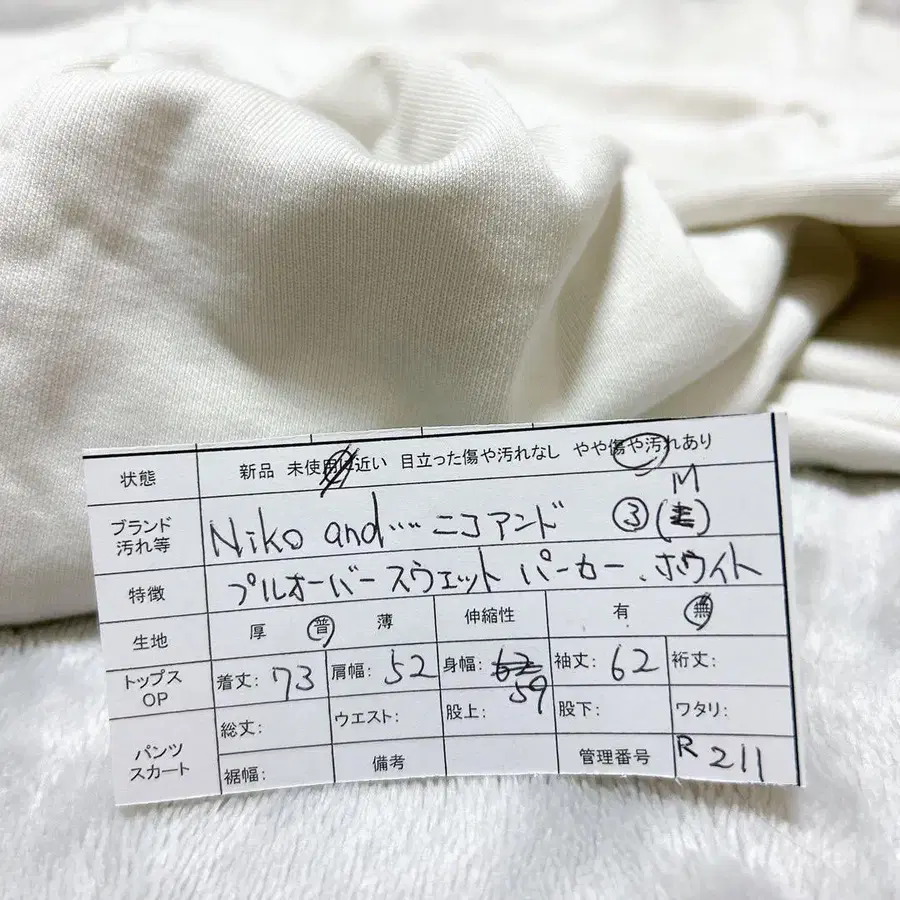 状態 新品 未使用に近い 目立った傷や汚れなし やや傷や汚れあり
M
ブランド 汚れ等 Niko and.... ニコアンド ③ ( )
特徴 プルオーバースウェットパーカー、ホワイト
生地 厚 普 薄 伸縮性 有 無
トップス OP 着丈: 73 肩幅: 52 身幅: 62 袖丈: 62 裄丈:
59
パンツ スカート 総丈: ウエスト: 股上: 股下: ワタリ:
裾幅: 備考 管理番号 R211